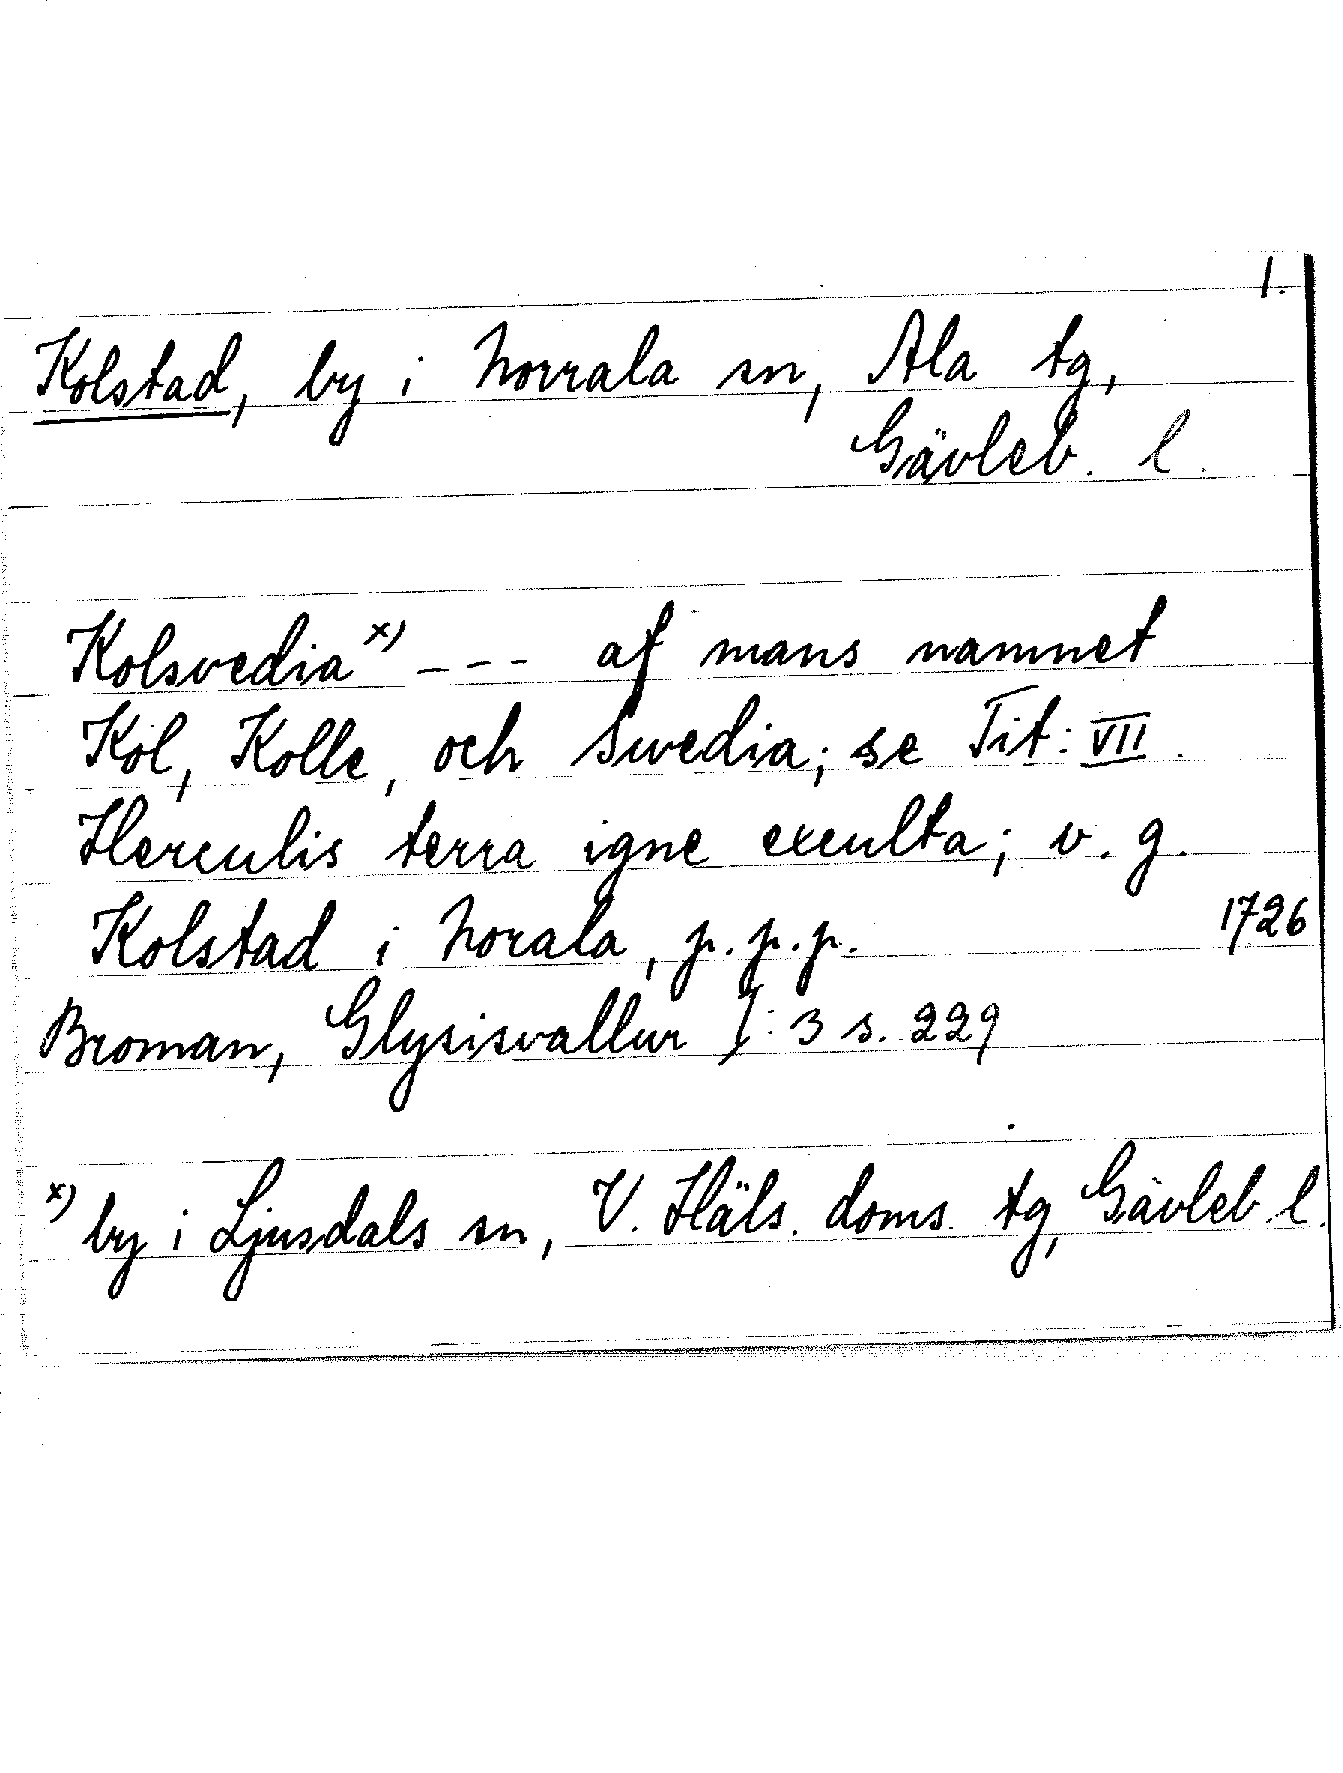 1.
Kolstad, by i Norrala sn, Ala tg,
Gävleb. l.
Kolsvedia x) - - - af mans namnet
Kol, Kolle, och Swedia; se Tit: VII.
Herculis terra igne exculta; v. g.
Kolstad i Norala, p.p.p. 1726
Broman, Glysisvallur I: 3 s. 229
x) by i Ljusdals sn, V. Häls. doms. tg, Gävleb. l.